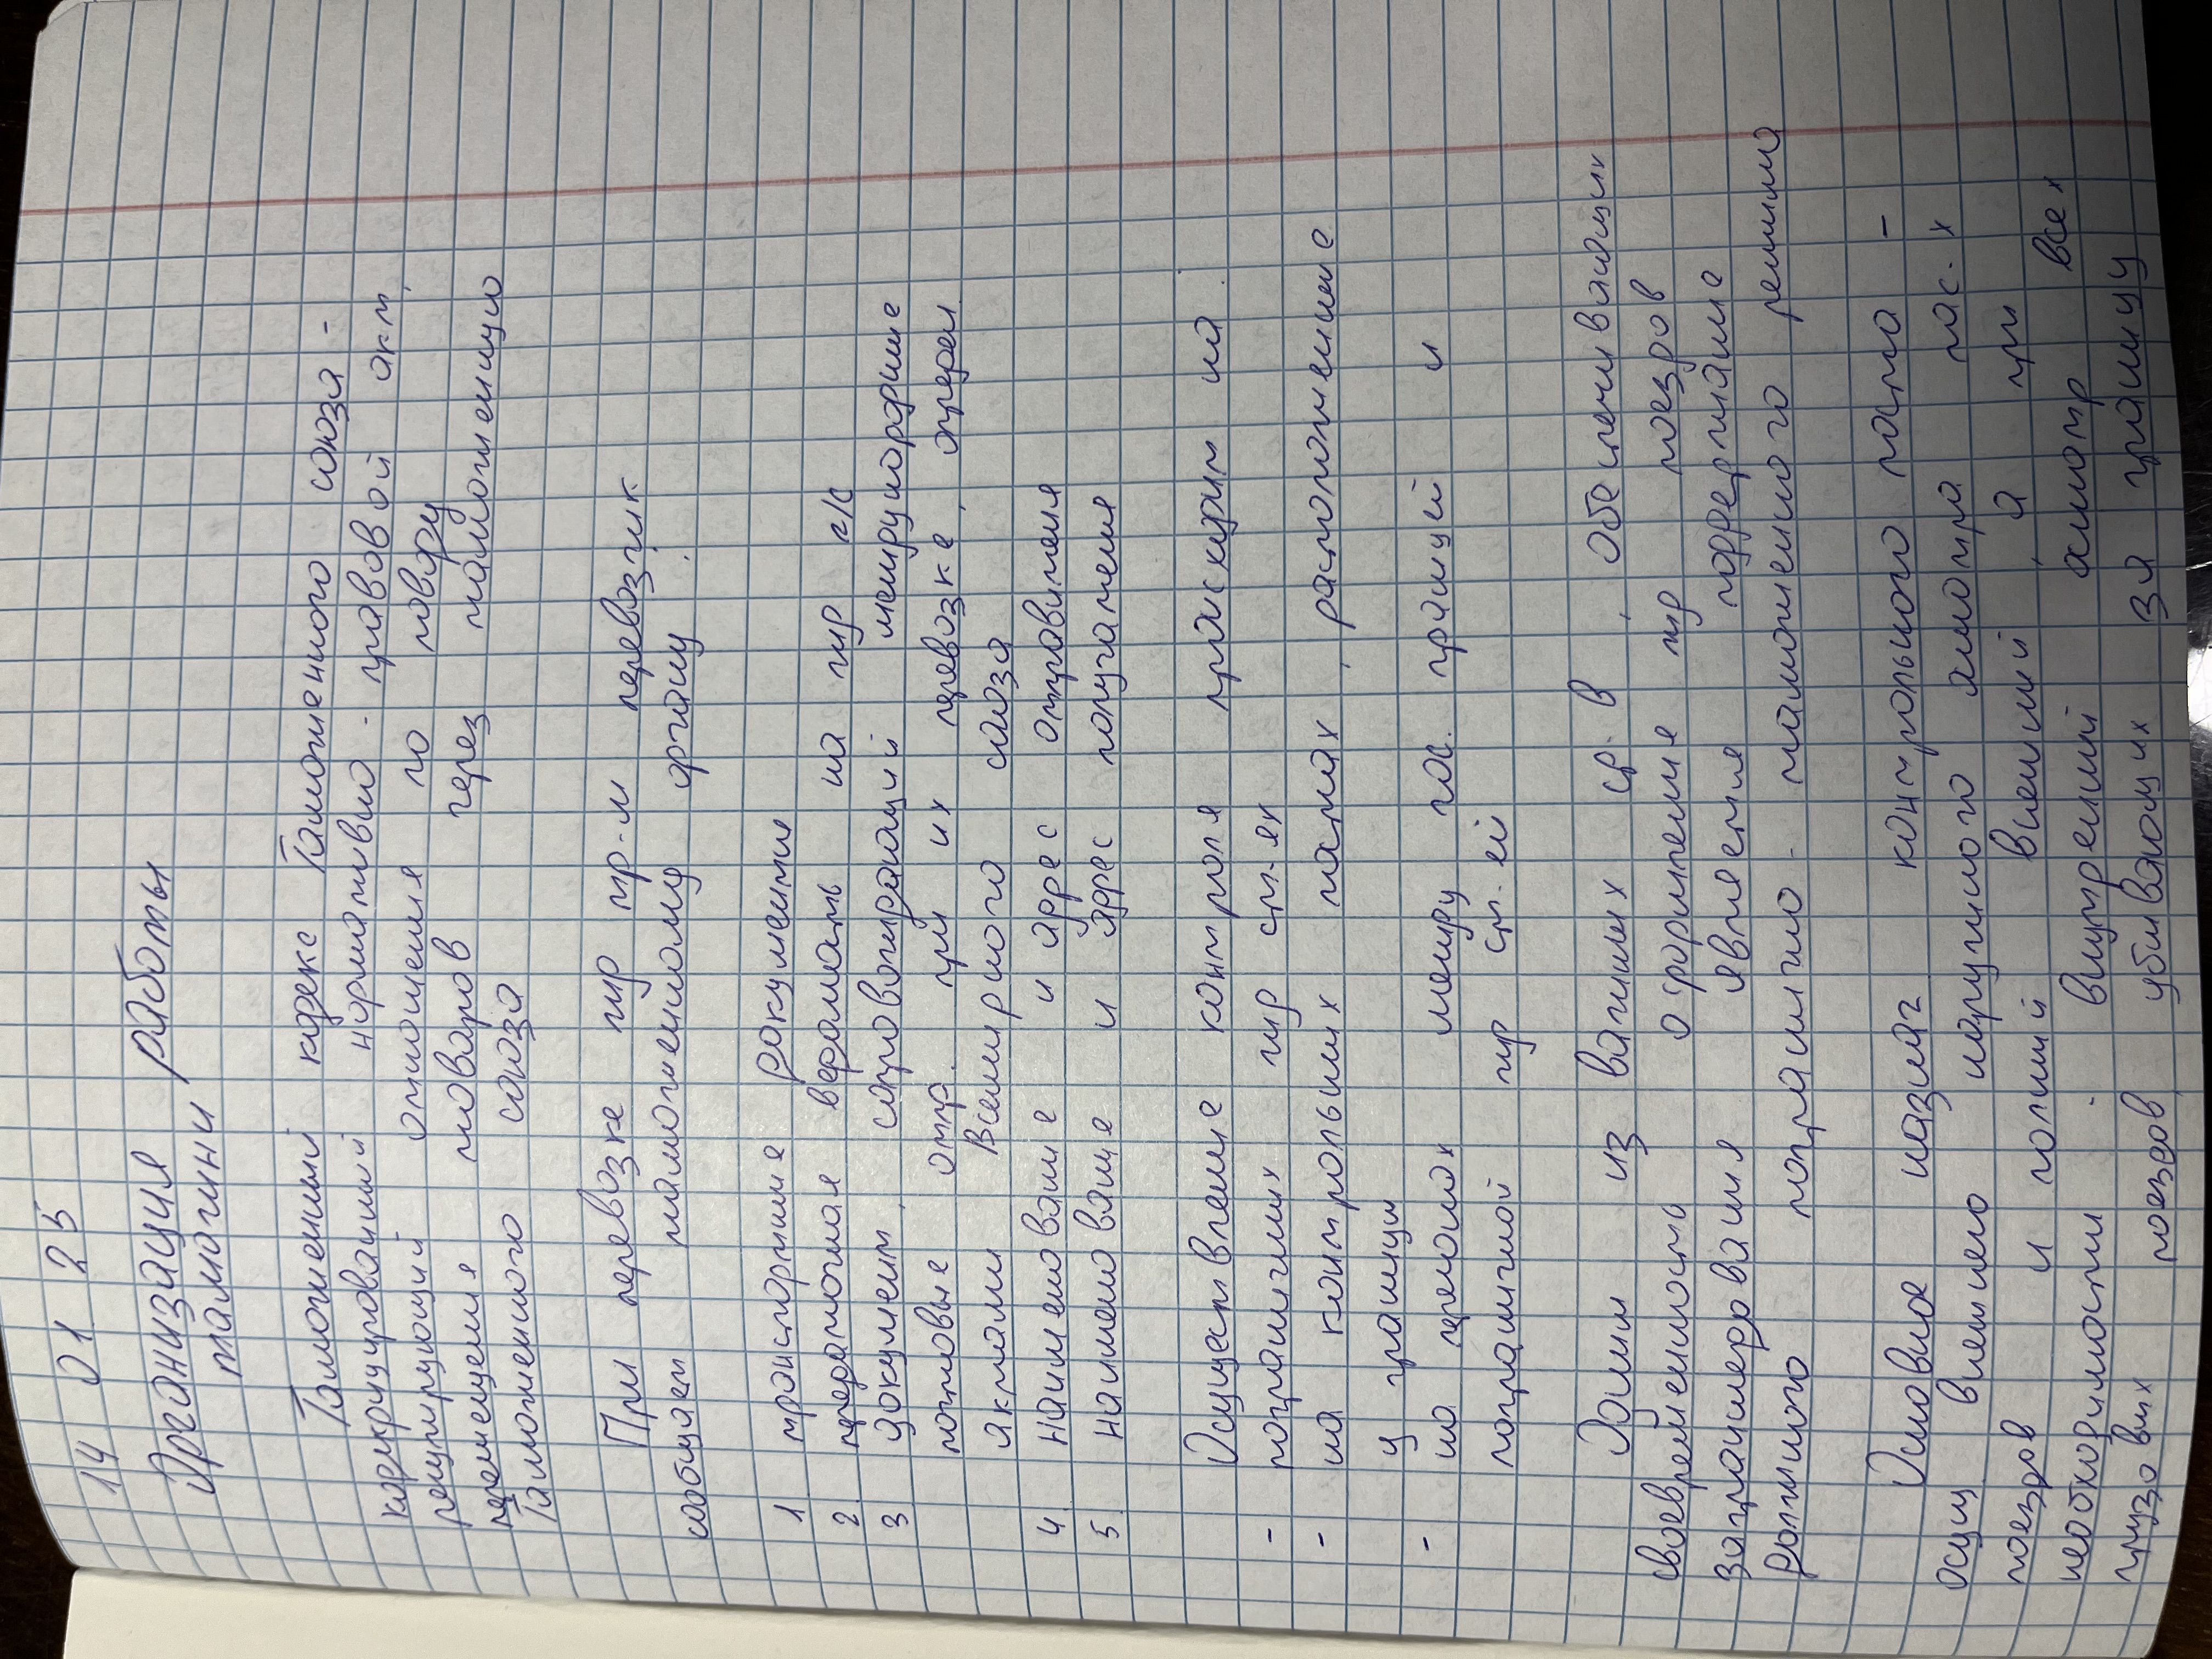 14 01 25
Организация работы
таможни
Таможенный кодекс Таможенного союза -
нормативно - правовой акт,
регулирующий отношения по поводу
перемещения товаров через таможенную
Таможенного союза
При перевозке жд тр-м перевозчик
сообщает таможенному органу :
1 транспортные документы
2. передаточная ведомость на жд п/с
3 документ, сопровождающий международные
почтовые отпр. при их перевозке, определ
актами Всемирного союза
4. Наименование и адрес отправителя
5. Наименование и адрес получателя
Осуществление контроля происходит на
- пограничных жд ст-ях
- на контрольных постах, расположенные
у границы
- на перегонах между гос. границей и
пограничной жд ст. ей
Одним из важных ср. в, обеспечивающих
своевременность оформления жд поездов
явление поддержание
должного погранично - таможенного режима
Основное назнач контрольного поста -
осущ внешнего наружного осмотра пас. х
поездов и полный внешний, а при
необходимости - внутренний осмотр всех
грузовых поездов, убывающих за границу